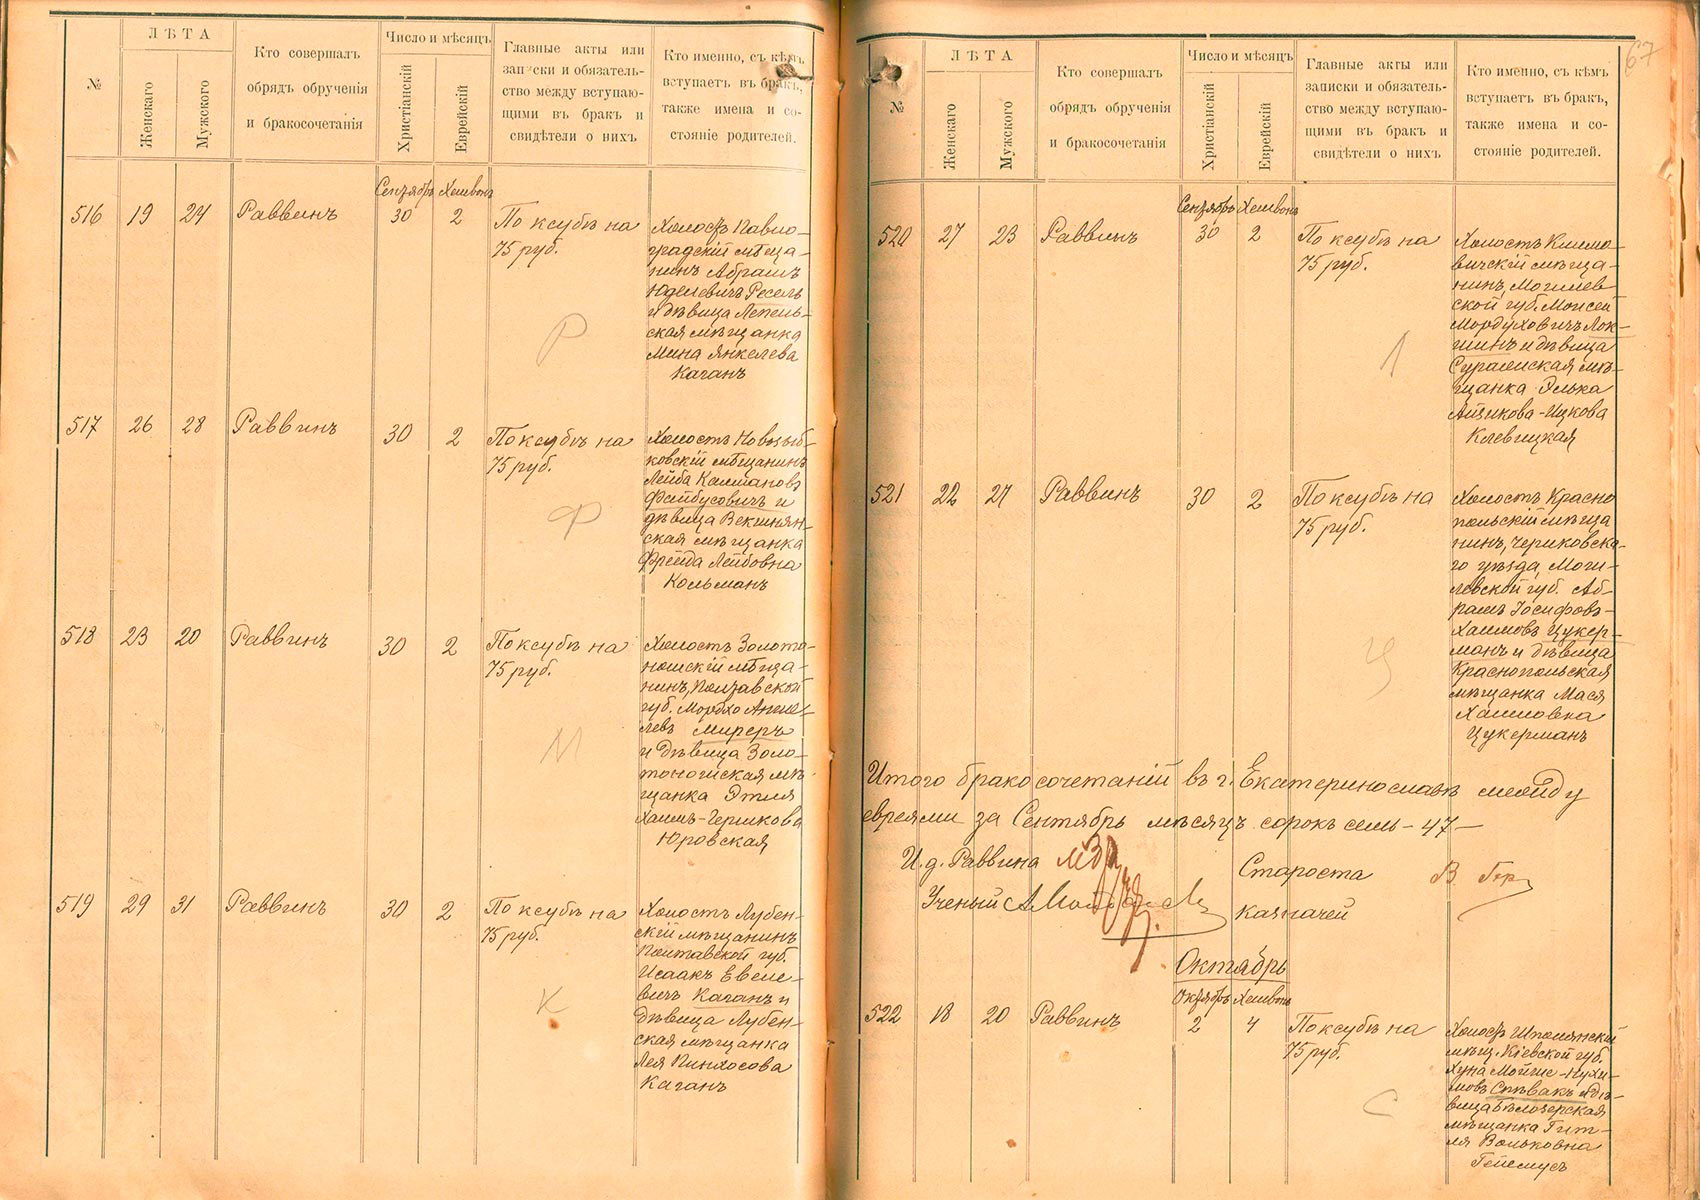 №
ЛѢТА
Женскаго
Мужского
Кто совершалъ
обрядъ обрученія
и бракосочетанія
Число и мѣсяцъ
Христіанскій
Еврейскій
Главные акты или
записки и обязатель-
ство между вступаю-
щими въ бракъ и
свидѣтели о нихъ
Кто именно, съ кѣмъ
вступаетъ въ бракъ,
также имена и со-
стояніе родителей.
Сентябрь Хешвонъ
516 19 24 Раввинъ 30 2
По ксубѣ на
75 руб.
Р
Холостъ Павло-
градскій мѣща-
нинъ Абрамъ
Юделевичъ Ресель
и дѣвица Лепель-
ская мѣщанка
Мина Янкелева
Каганъ
517 26 28 Раввинъ 30 2
По ксубѣ на
75 руб.
Ф
Холостъ Новозыб-
ковскій мѣщанинъ
Лейба Калмановъ
Файбусовичъ и
дѣвица Векшнян-
ская мѣщанка
Фрейда Лейбовна
Кольманъ
518 23 20 Раввинъ 30 2
По ксубѣ на
75 руб.
М
Холостъ Золото-
ношскій мѣща-
нинъ, Полтавской
губ. Мордхо Анше-
левъ Миреръ
и дѣвица Золо-
тоношская мѣ-
щанка Этля
Хаимъ-Гершкова
Юровская
519 29 31 Раввинъ 30 2
По ксубѣ на
75 руб.
К
Холостъ Лубен-
скій мѣщанинъ
Полтавской губ.
Исаакъ Евеле-
вичъ Каганъ и
дѣвица Лубен-
ская мѣщанка
Лея Пинхосова
Каганъ
67
№
ЛѢТА
Женскаго
Мужского
Кто совершалъ
обрядъ обрученія
и бракосочетанія
Число и мѣсяцъ
Христіанскій
Еврейскій
Главные акты или
записки и обязатель-
ство между вступаю-
щими въ бракъ и
свидѣтели о нихъ
Кто именно, съ кѣмъ
вступаетъ въ бракъ,
также имена и со-
стояніе родителей.
Сентябрь Хешвонъ
520 27 23 Раввинъ 30 2
По ксубѣ на
75 руб.
Л
Холостъ Климо-
вичскій мѣща-
нинъ, Могилев
ской губ. Моисей
Мордуховичъ Лок-
шинъ и дѣвица
Суражская мѣ-
щанка Элька
Айзикова-Ицкова
Клевицкая
521 22 27 Раввинъ 30 2
По ксубѣ на
75 руб.
Ц
Холостъ Красно
польскій мѣща
нинъ, Чериковска-
го уѣзда, Моги-
левской губ. Аб-
рамъ Іосифовъ-
Хаимовъ Цукер-
манъ и дѣвица
Краснопольская
мѣщанка Мася
Хаимовна
Цукерманъ
Итого бракосочетаній въ г. Екатеринославѣ между
евреями за Сентябрь мѣсяцъ сорокъ семь - 47 -
И. д. Раввина
Староста
Ученый
Казначей
Октябрь
Октябрь Хешвонъ
522 18 20 Раввинъ 2 4
По ксубѣ на
75 руб.
С
Холостъ Шполянскій
мѣщ. Кіевской губ.
Хуна Мойше-Нухи-
мовъ Спѣвакъ и дѣ-
вица Бѣлозерская
мѣщанка Гит-
ля Вольковна